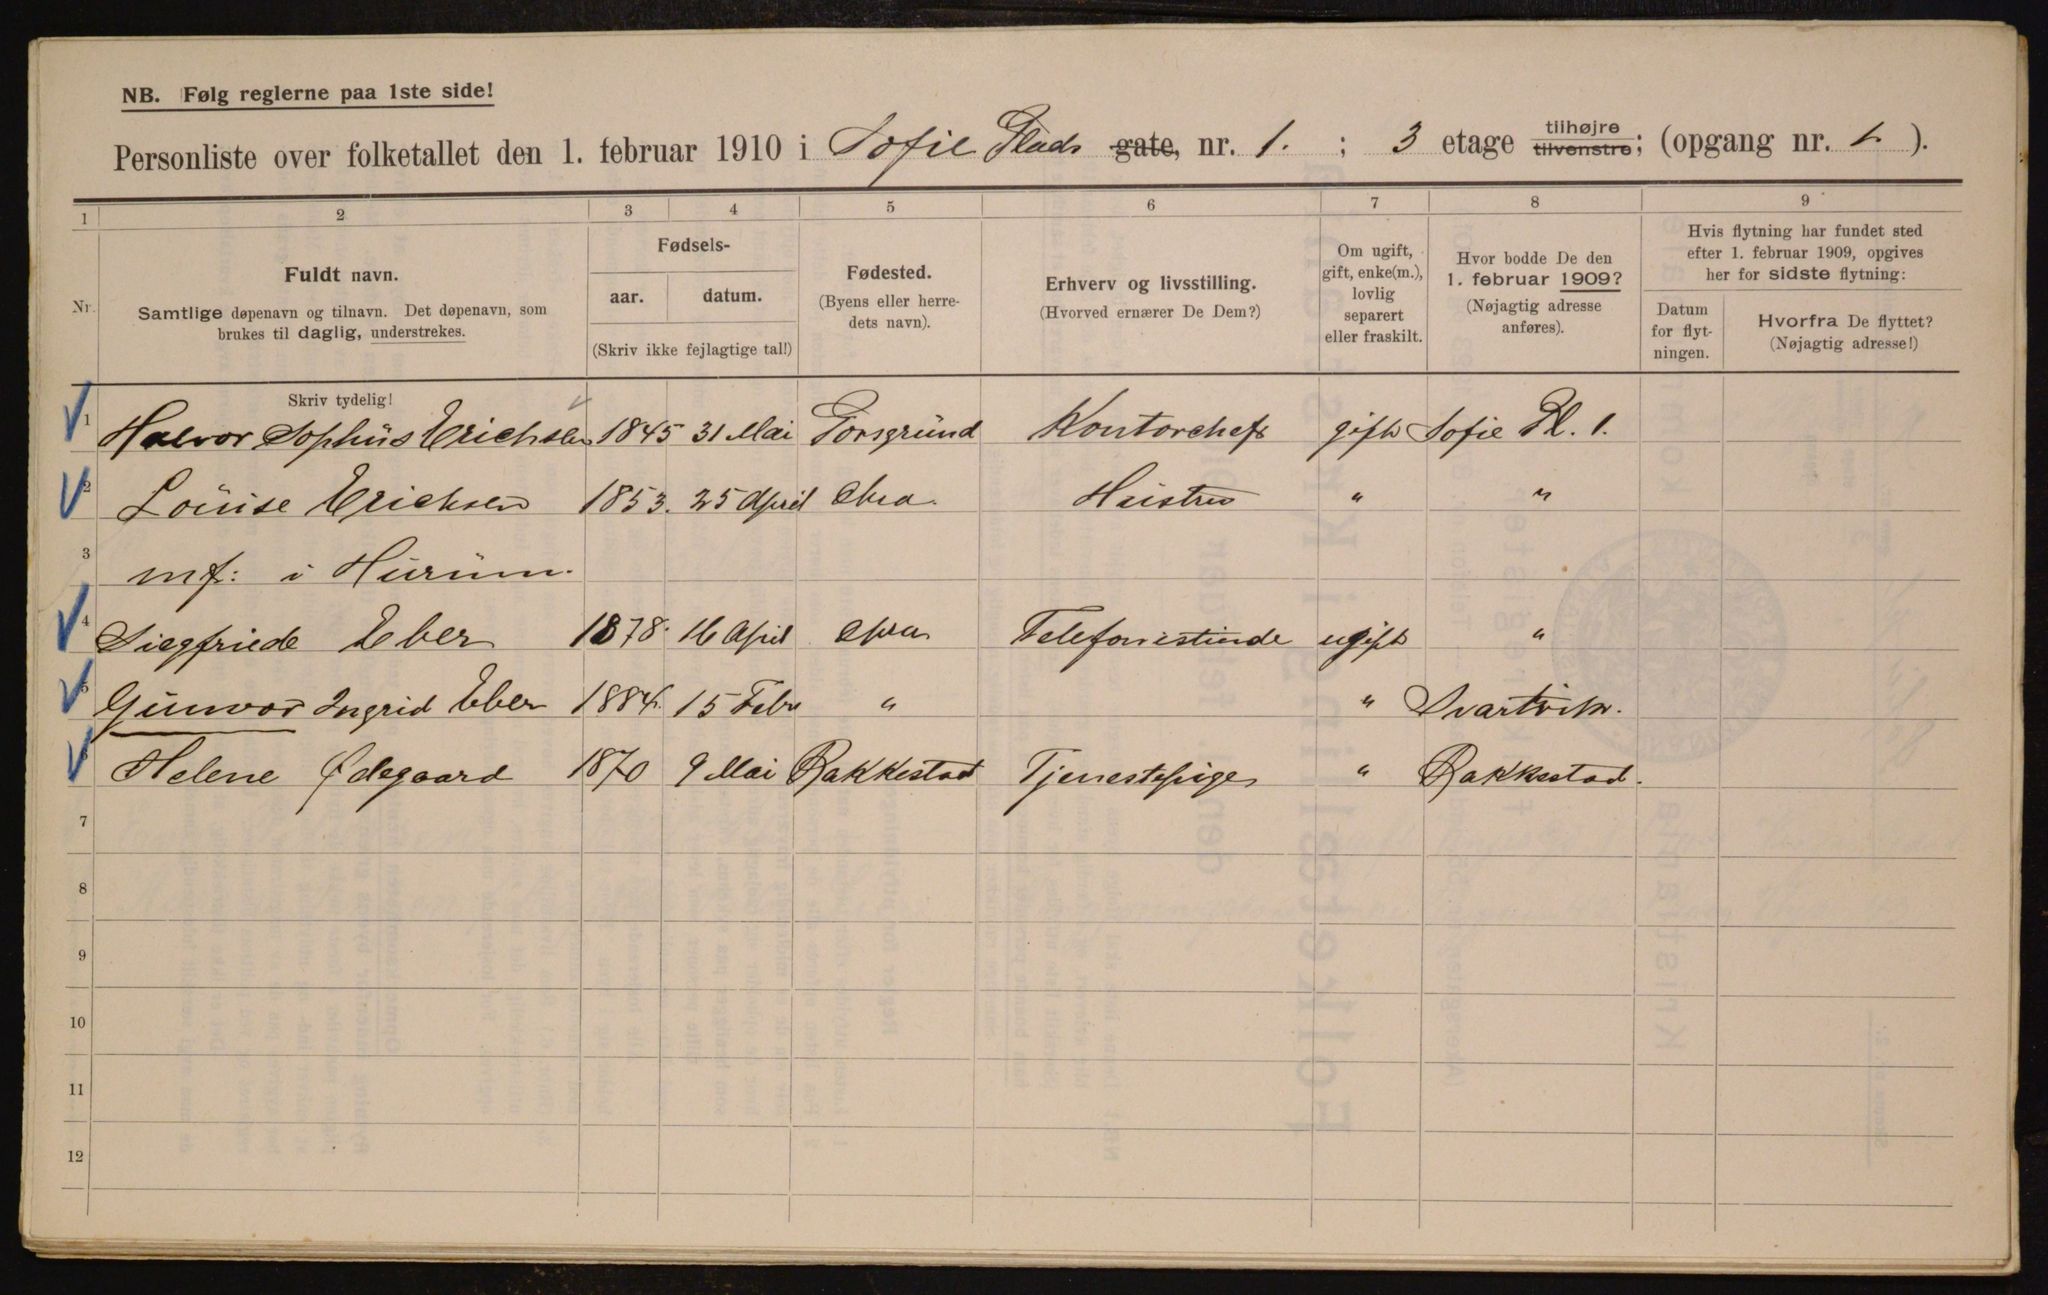 NB. Følg reglerne paa 1ste side!
Personliste over folketallet den 1. februar 1910 i Sofie Plads gate, nr. 1. ; 3 etage tilhøjre tilvenstre; (opgang nr. 1 ).
1 2 3 4 5 6 7 8 9
Nr. Fuldt navn. Samtlige døpenavn og tilnavn. Det døpenavn, som
brukes til daglig, understrekes.
Skriv tydelig!
Fødsels-
aar. datum.
(Skriv ikke fejlagtige tal!)
Fødested.
(Byens eller herre-
dets navn).
Erhverv og livsstilling.
(Hvorved ernærer De Dem?)
Om ugift,
gift, enke(m.),
lovlig
separert
eller fraskilt.
Hvor bodde De den
1. februar 1909?
(Nøjagtig adresse
anføres).
Hvis flytning har fundet sted
efter 1. februar 1909, opgives
her for sidste flytning:
Datum
for flyt-
ningen.
Hvorfra De flyttet?
(Nøjagtig adresse!)
1 Halvor Sophus Erichsen 1845 31 Mai Porsgrund Kontorchef gift Sofie Pl. 1.
2 Louise Erichsen 1853. 25 April Chra. Hustru " "
3 mf: i Hurum.
4 Siegfriede Eber 1878. 16 April Chra Telefonistinde ugift "
5 Gunvor Ingrid Eber 1884. 15 Febr " " Svartvik.
Helene Ødegaard 1870 9 Mai Rakkestad Tjenestepige " Rakkestad.
7
8
9
10
11
12